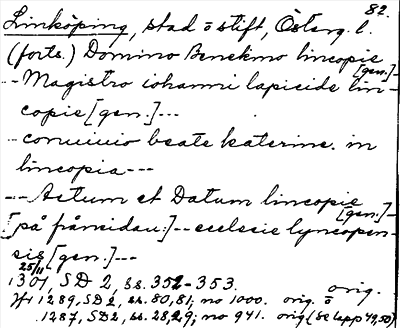 82.
Linköping, stad o stift, Österg. l.
(forts.) Domino Benekino lincopie
[gen.]--
-- Magistro iohanni lapicide lin-
copie [gen.]---
-- conuiuio beate katerine. in
lincopia---
--- Actum et Datum lincopie
[gen.]--
[på frånsidan:]-- ecclesie lyncopen-
sis [gen.]---
25/11
1301, SD 2, ss. 352-353. orig.
1289, SD 2, ss. 80, 81; no 1000. orig. o
1287, SD 2, ss. 28, 29; no 941. orig. (se lapp 49, 50).